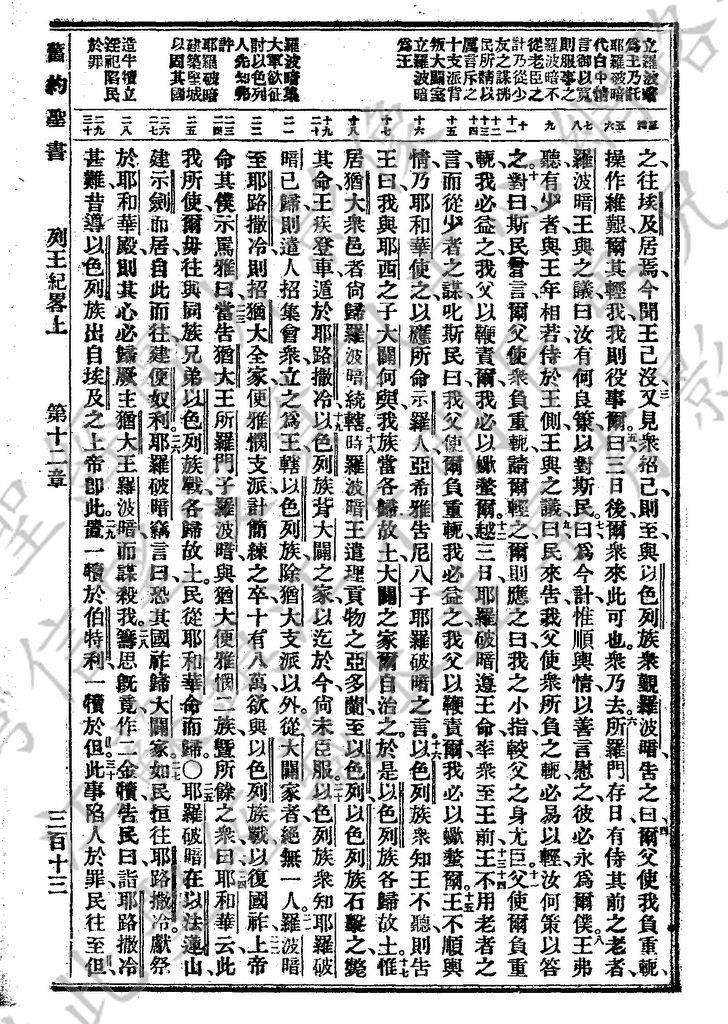 立羅波暗
為王乃託
耶羅破暗
代白中情
言御以寬
則服事之
羅波暗不
從老臣之
計乃從少
友之謀拂
民所請以
厲言斥之
十支派背
叛大闢室
立羅波暗
為王
羅波暗集
大軍欲征
討以色列
人先知弗
許
耶羅破暗
建築堅城
以固其國
造牛犢立
淫祀陷民
於罪
之往埃及居焉今聞王已沒又見衆招己則至與以色列族衆覲羅波暗告之曰爾父使我負重軛
操作維艱爾其輕我我則役事爾曰三日後爾衆來此可也衆乃去所羅門存日有侍其前之老者
羅波暗王與之議曰汝有何良策以對斯民曰為今計惟順輿情以善言慰之彼必永為爾僕王弗
聽有少者與王年相若侍於王側王與之議曰民來告我父使衆所負之軛必易以輕汝何策以答
之對曰斯民嘗言爾父使衆負重軛請爾輕之爾則應之曰我之小指較父之身尤巨父使爾負重
軛我必益之我父以鞭責爾我必以蠍螫爾越三日耶羅破暗遵王命率衆至王前王不用老者之
言而從少者之謀叱斯民曰我父使爾負重軛我必益之我父以鞭責爾我必以蠍螫爾王不順輿
情乃耶和華使之以應所命示羅人亞希雅告尼八子耶羅破暗之言以色列族衆知王不聽則告
王曰我與耶西之子大闢何與我族當各歸故土大闢之家爾自治之於是以色列族各歸故土惟
居猶大衆邑者尚歸羅波暗統轄時羅波暗王遣理貢物之亞多蘭至以色列以色列族石擊之斃
其命王疾登車遁於耶路撒冷以色列族背大闢之家以迄於今尚未臣服以色列族衆知耶羅破
暗已歸則遣人招集會衆立之為王轄以色列族除猶大支派以外從大闢家者絕無一人羅波暗
至耶路撒冷則招猶大全家便雅憫支派計簡練之卒十有八萬欲與以色列族戰以復國祚上帝
命其僕示罵雅曰當告猶大王所羅門子羅波暗與猶大便雅憫二族曁所餘之衆曰耶和華云此
我所使爾毋往與同族兄弟以色列族戰各歸故土民從耶和華命而歸〇耶羅破暗在以法蓮山
建示劍而居自此而往建便奴利耶羅破暗竊言曰恐其國祚歸大闢家如民恒往耶路撒冷獻祭
於耶和華殿則其心必歸厥主猶大王羅波暗而謀殺我籌思旣竟作二金犢告民曰詣耶路撒冷
甚難昔導以色列族出自埃及之上帝卽此置一犢於伯特利一犢於但此事陷人於罪民往至但
舊約聖書 列王紀畧上 第十二章 三百十三